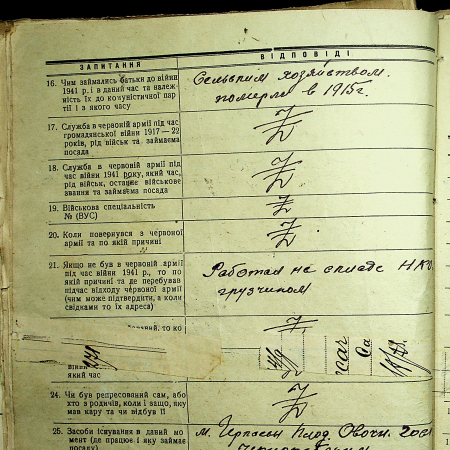 ЗАПИТАННЯ
ВІДПОВІДІ
16. Чим займались батьки до війни
1941 р. і в даний час та належ-
ність їх до комуністичної пар-
тії і з якого часу
Сельским хозяйством.
померли в 1915 г.
17. Служба в червоній армії під час
громадянської війни 1917—22
років, рід військ та займаєма
посада
18. Служба в червоній армії під
час війни 1941 року, який час,
рід військ, останнє військове
звання та займаєма посада
19. Військова спеціальність
№ (ВУС)
20. Коли повернувся з червоної
армії та по якій причині
21. Якщо не був в червоній армії
під час війни 1941 р., то по
якій причині та де перебував
підчас відходу червоної армії
(чим може підтвердити, а коли
свідками то їх адреса)
Работал на складе
грузчиком
то ко
який час
24. Чи був репресований сам, або
хто з родичів, коли і защо, яку
мав кару та чи відбув її
25. Засоби існування в даний мо-
мент (де працює і яку займає
посаду)
м. Черкассы Плод. Овочи.